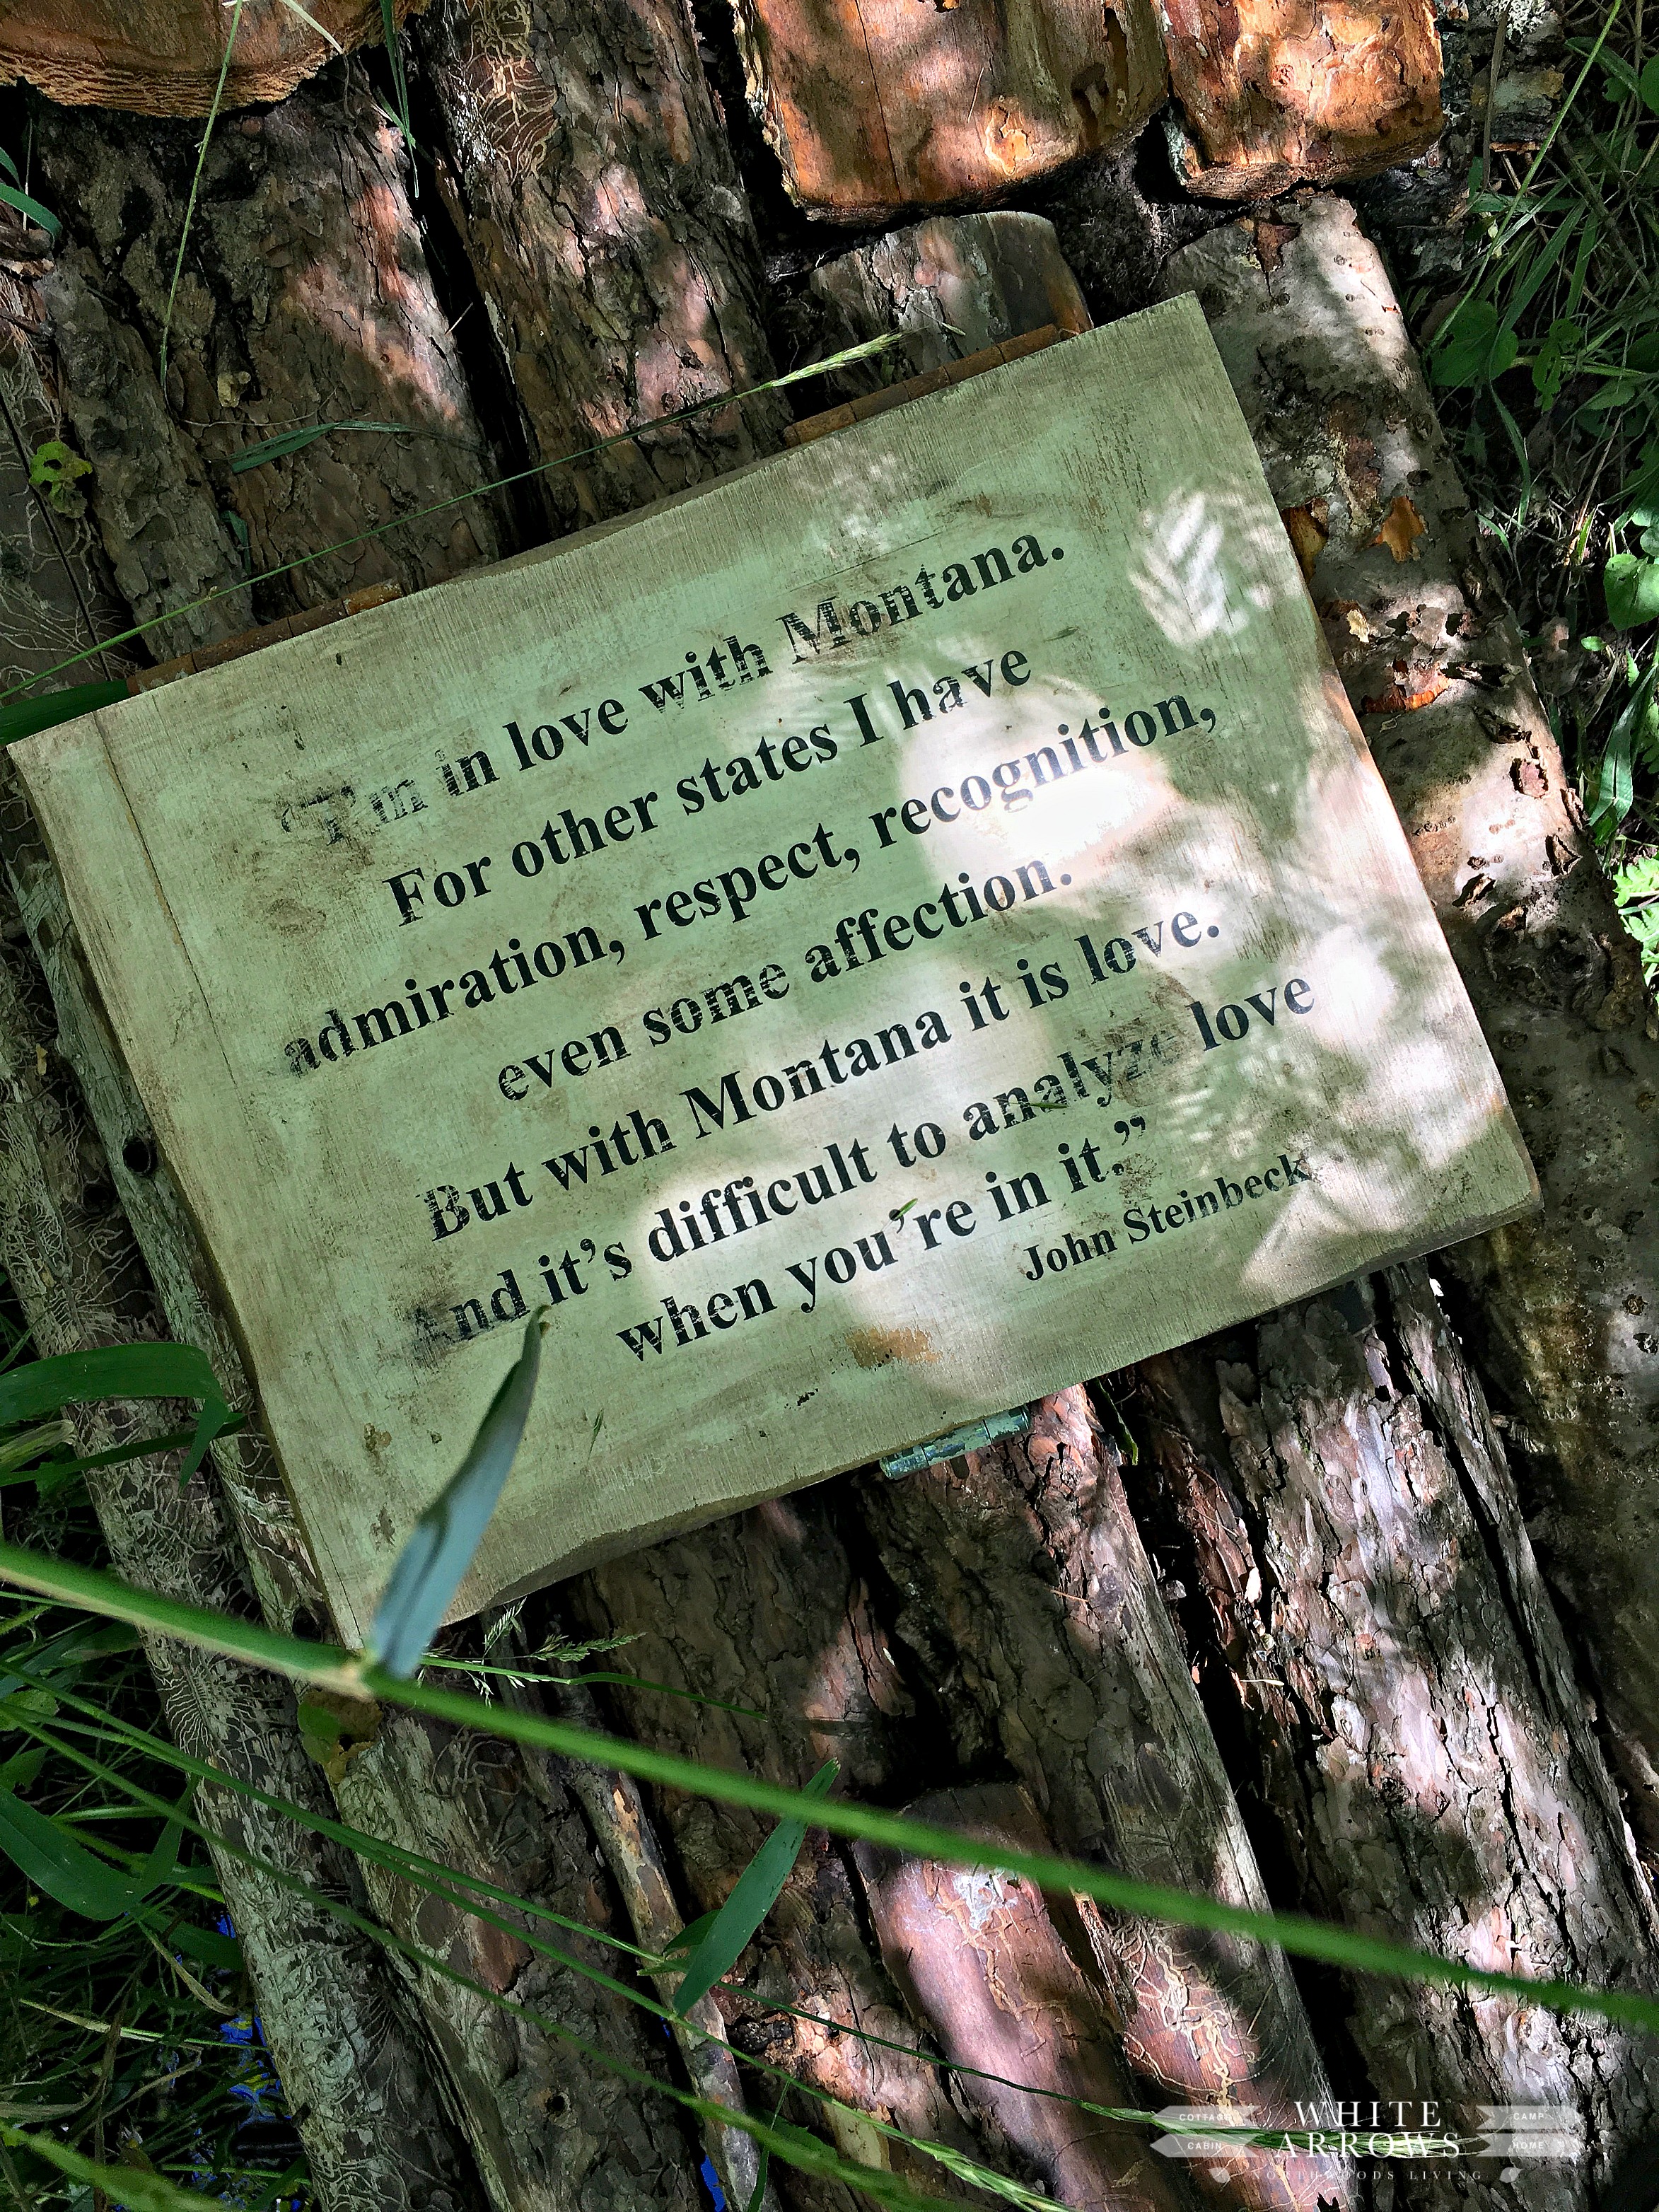 “I'm in love with Montana.
For other states I have
admiration, respect, recognition,
even some affection.
But with Montana it is love.
And it’s difficult to analyze love
when you’re in it.”
John Steinbeck
WHITE
ARROWS
COTTAGE
CAMP
CABIN
HOME
NORTHWOODS LIVING